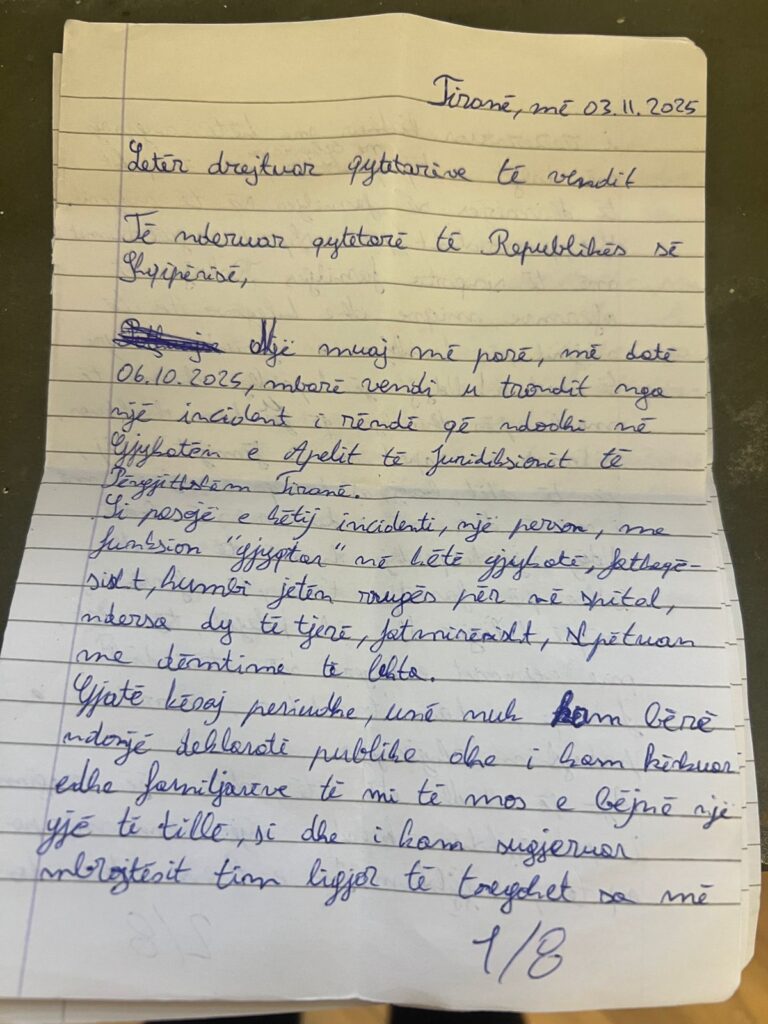 Tiranë, më 03.11.2025
Letër drejtuar qytetarëve të vendit
Të nderuar qytetarë të Republikës së
Shqipërisë,
Një muaj më parë, më datë
06.10.2025, mbarë vendi u trondit nga
një incident i rëndë që ndodhi në
Gjykatën e Apelit të Juridiksionit të
Përgjithshëm Tiranë.
Si pasojë e këtij incidenti, një person, me
funksion "gjyqtar" në këtë gjykatë, fatkeqë-
sisht, humbi jetën rrugës për në spital,
ndërsa dy të tjerë, fatmirësisht, shpëtuan
me dëmtime të lehta.
Gjatë kësaj periudhe, unë nuk kam bërë
ndonjë deklaratë publike dhe i kam kërkuar
edhe familjarëve të mi të mos e bëjnë një
gjë të tillë, si dhe i kam sugjeruar
mbrojtësit tim ligjor të tregohet sa më
1/8
2/8